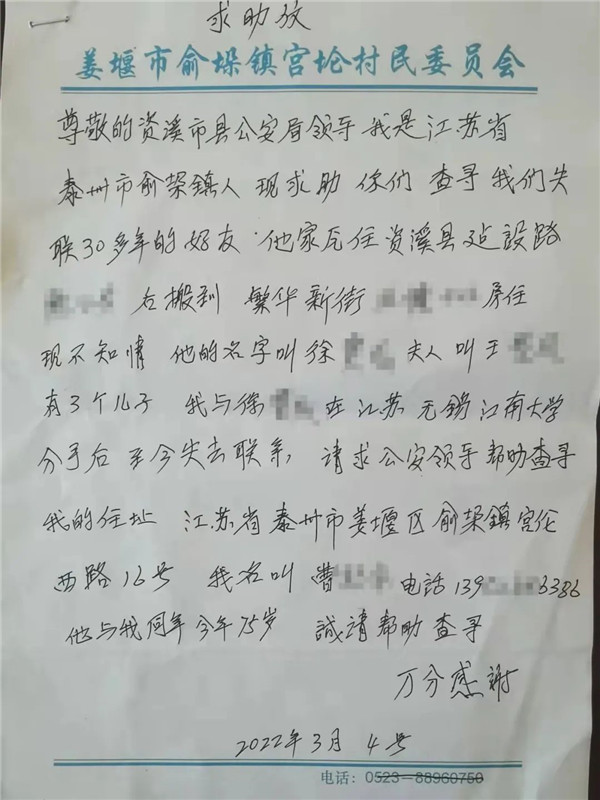 求助放
姜堰市俞垛镇宫坨村民委员会
尊敬的资溪市县公安局领导 我是江苏省
泰州市俞垛鎮人 现求助 你们 查寻 我们失
联30多年的好友 他家瓦住 资溪县 建設路
右搬到 繁华新街 房住
现不知情 他的名字叫徐 夫人叫王
有3个儿子 我与徐 在江苏无锡江南大学
分手后 至今失去联系, 请求公安领导帮助查寻
我的住址 江苏省泰州市姜堰区俞垛鎮宫伦
西路16号 我名叫 曹 电话139 6386
他与我同年今年75岁 誠请帮助 查寻
万分感謝
2022年3月4号
电话:0523-88960750